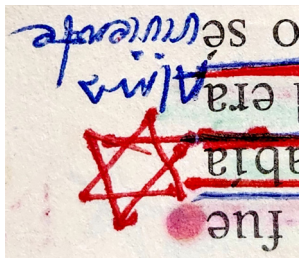 fue
abía
era Alma
o sé viviente